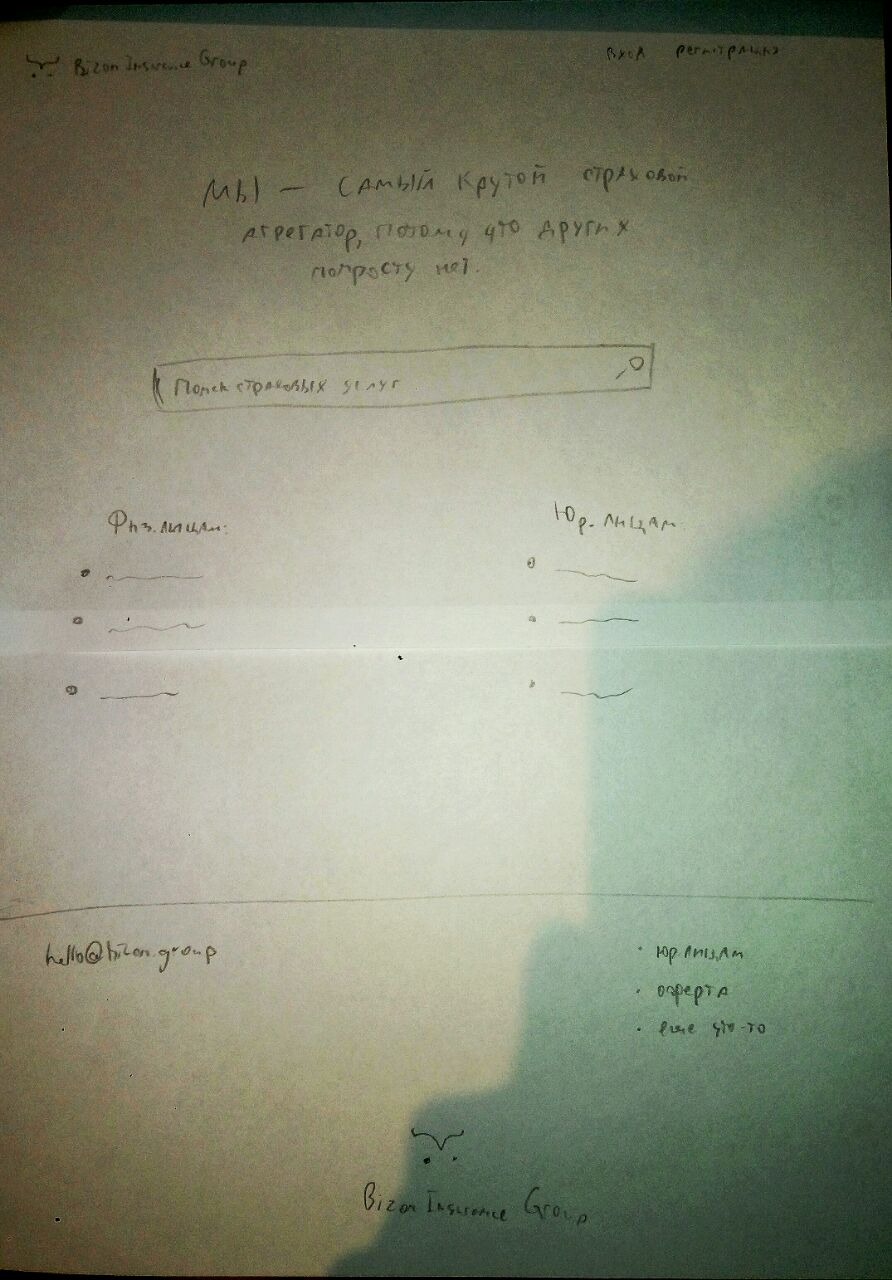 Bizon Insurance Group
вход регистрация
Мы — самый крутой страховой
агрегатор, потому что других
попросту нет.
Поиск страховых услуг
Физ.лицам:
Юр. лицам
hello@bizon.group
юр.лицам
оферта
еще что-то
Bizon Insurance Group